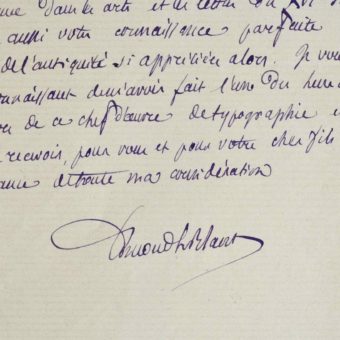 dans les arts et les lettres du XVI
aussi votre connaissance parfaite
de l'antiquité si appréciée alors. Je vous
connaissant de m'avoir fait l'un des heureux
de ce chef d'œuvre de typographie et
recevoir, pour vous et pour votre cher fils
de toute ma considération
Edmond Le Blant